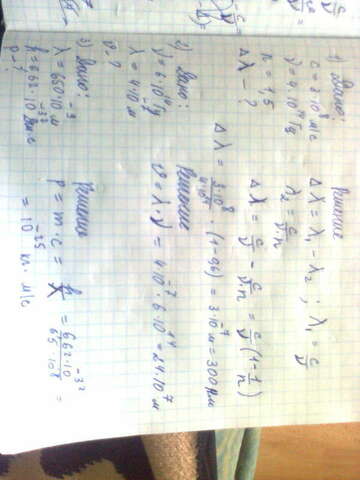 1) Дано:
c = 3·10⁸ м/с
ν = 4·10¹⁴ Гц
n = 1,5
Δλ — ?
Решение
Δλ = λ₁ - λ₂ ; λ₁ = c/ν
λ₂ = c/ν·n
Δλ = c/ν - c/ν·n = c/ν (1 - 1/n)
Δλ = 3·10⁸/4·10¹⁴ · (1 - 0,6) = 3·10⁻⁷ м = 300 нм
2) Дано:
ν = 6·10¹⁴ Гц
λ = 4·10⁻⁷ м
υ - ?
Решение
υ = λ·ν = 4·10⁻⁷ · 6·10¹⁴ = 24·10⁷ м
3) Дано:
λ = 650·10⁻⁹ м
h = 662·10⁻³⁵ Дж·с
p - ?
Решение
p = m·c = h/λ = 662·10⁻³⁵/65·10⁻⁸ =
= 10⁻²⁵ кг · м/с